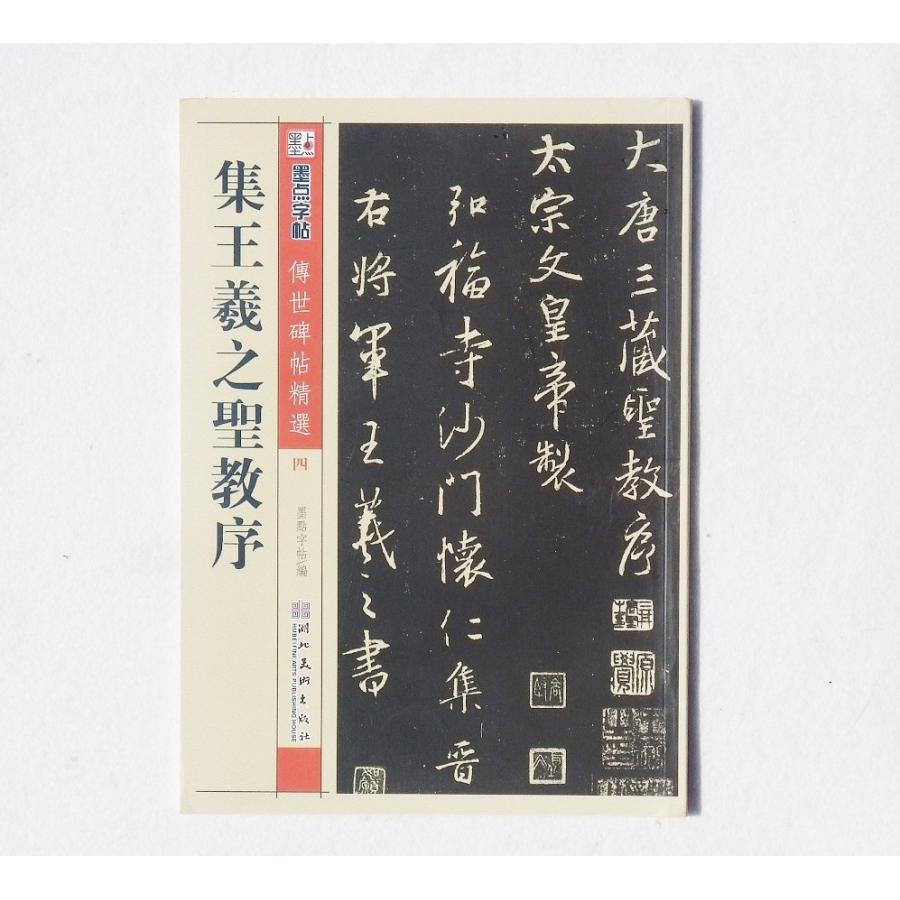 大唐三藏聖教序
太宗文皇帝製
弘福寺沙門懷仁集晉
右將軍王羲之書
墨点
墨点字帖
傳世碑帖精選
四
墨點字帖/編
湖北美术出版社
HUBEI FINE ARTS PUBLISHING HOUSE
集王羲之聖教序